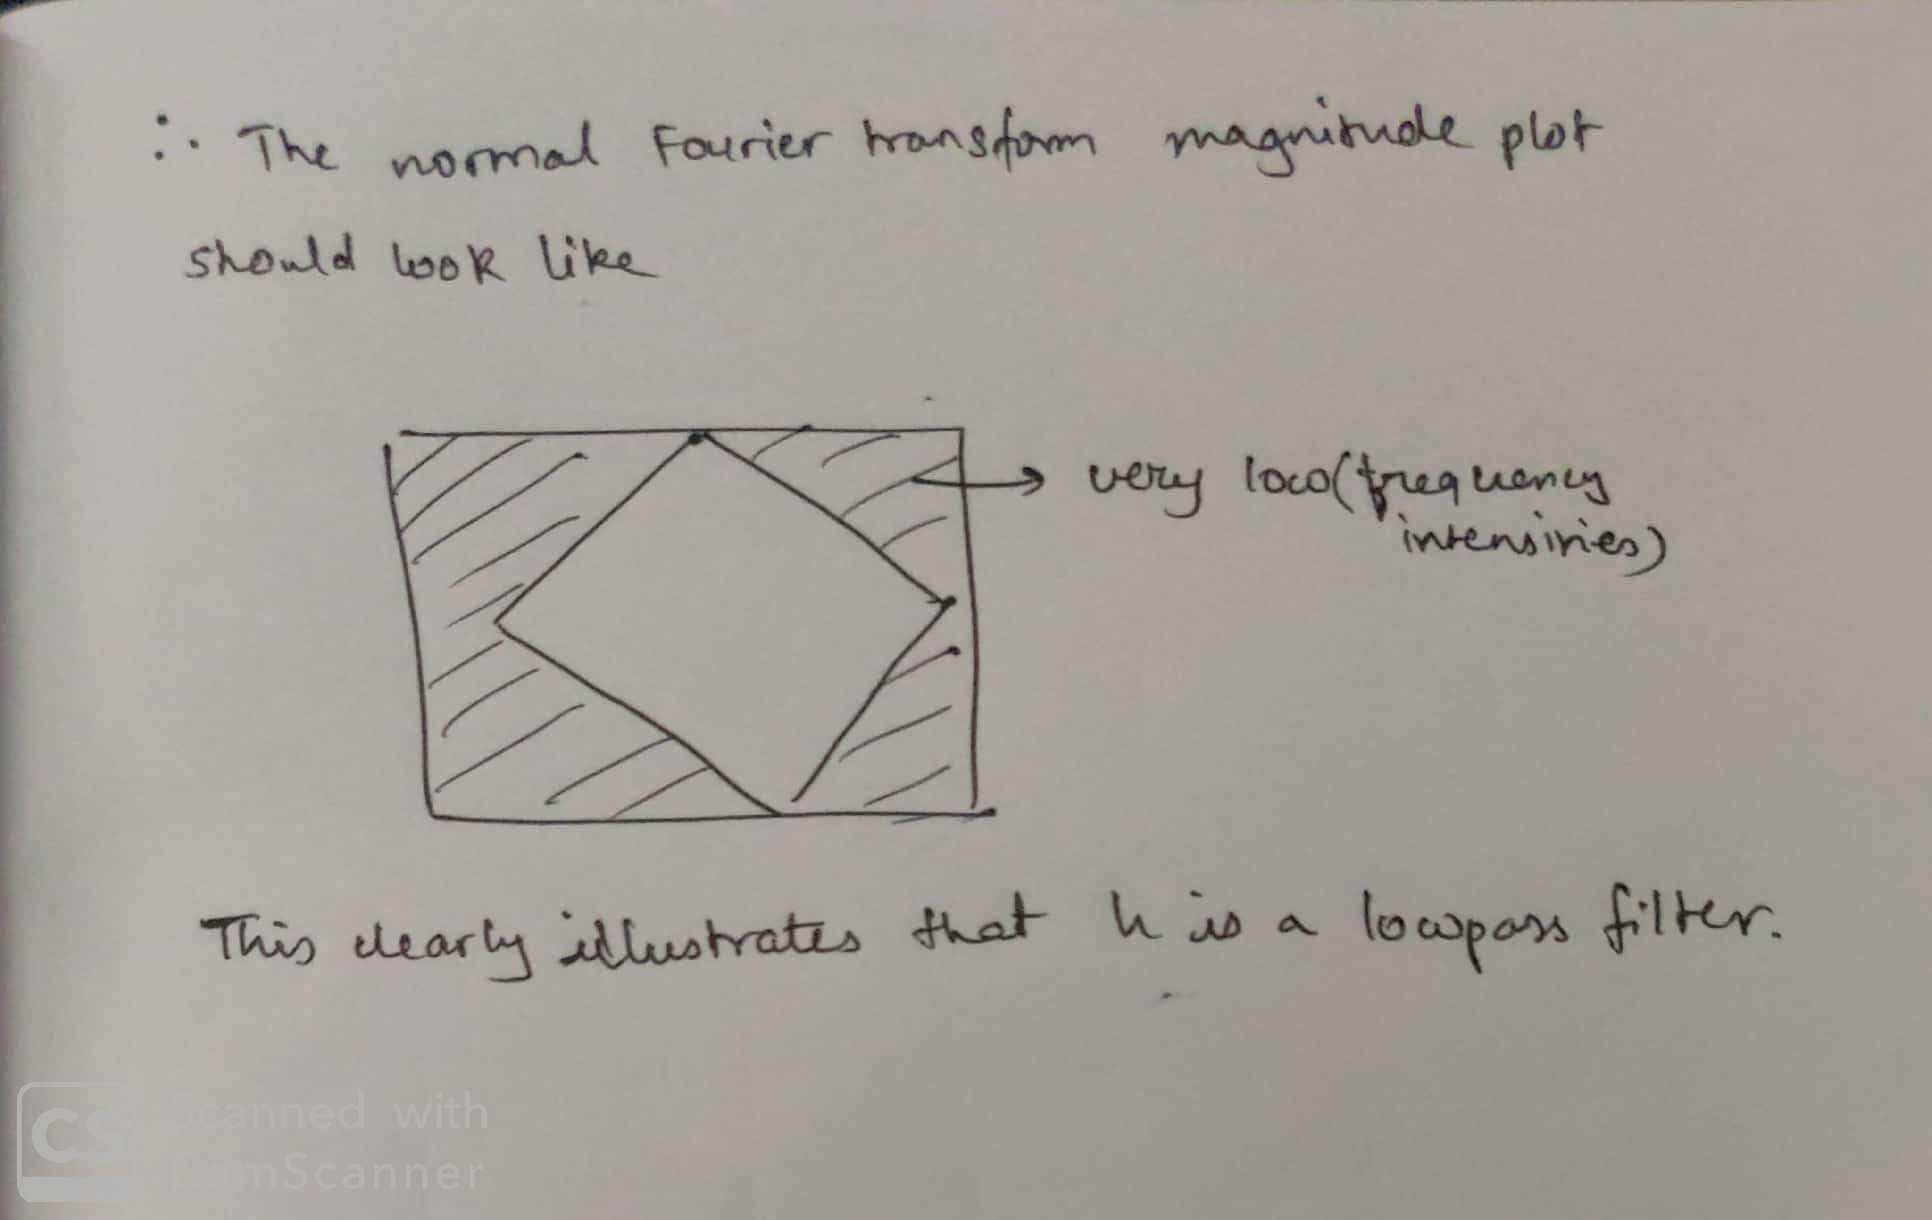 ∴ The normal Fourier transform magnitude plot
should look like
very low (frequency
intensities)
This clearly illustrates that h is a lowpass filter.
CS
Scanned with
CamScanner